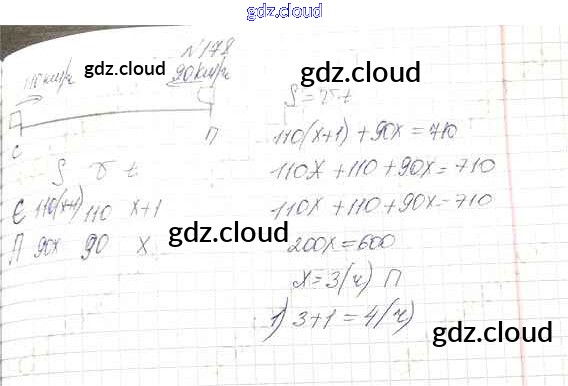 gdz.cloud
№178
110 км/ч gdz.cloud 90 км/ч
gdz.cloud
С П
S = v t
110(x+1) + 90x = 710
110x + 110 + 90x = 710
110x + 110 + 90x = 710
200x = 600
x = 3(ч) П
1) 3+1 = 4(ч)
S v t
С 110(x+1) 110 x+1
П 90x 90 x
gdz.cloud
gdz.cloud